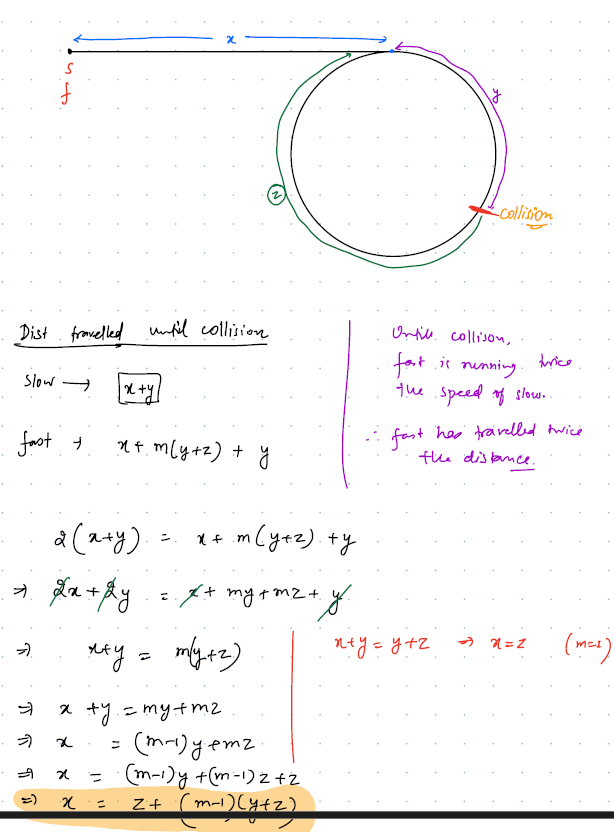 x
s
f
y
z
collision
Dist travelled until collision
Slow → x+y
fast → x + m(y+z) + y
Until collison,
fast is running twice
the speed of slow.
∴ fast has travelled twice
the distance.
2(x+y) = x + m(y+z) + y
⇒ 2x + 2y = x + my + mz + y
⇒ x+y = m(y+z)
x+y = y+z ⇒ x=z (m=1)
⇒ x + y = my + mz
⇒ x = (m-1)y + mz
⇒ x = (m-1)y + (m-1)z + z
⇒ x = z + (m-1)(y+z)